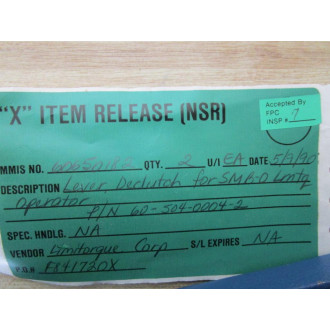 Accepted By
FPC
INSP # 7
"X" ITEM RELEASE (NSR)
MMIS NO. QTY. 2 U/I EA DATE 5/9/90
DESCRIPTION Lever, Declutch for SMB-0 Lmtq
Operator
P/N 60-504-0004-2
SPEC. HNDLG. NA
VENDOR Limitorque Corp S/L EXPIRES NA
P.O.#